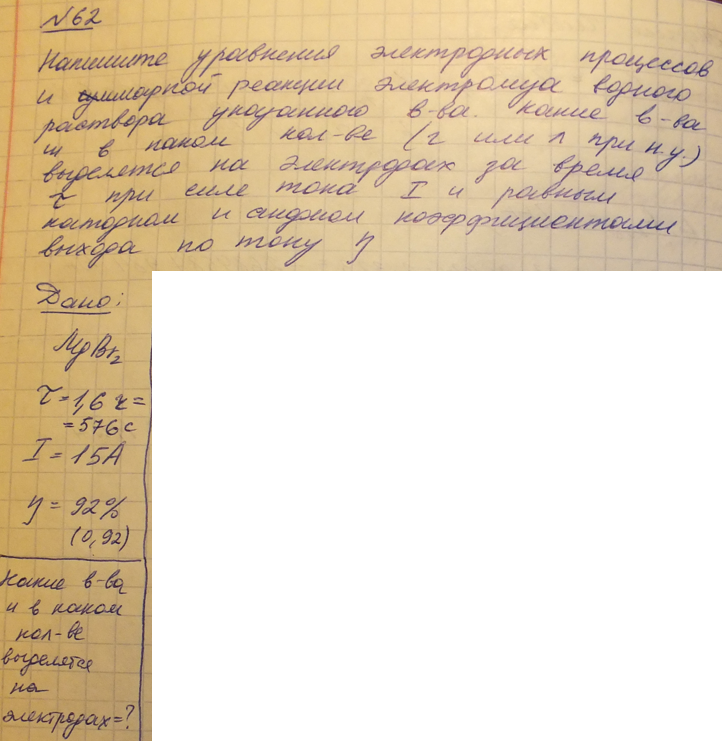 №62
Напишите уравнения электродных процессов
и суммарной реакции электролиза водного
раствора указанного в-ва. Какие в-ва
и в каком кол-ве (г или л при н.у.)
выделятся на электродах за время
τ при силе тока I и равными
катодном и анодном коэффициентами
выхода по току η
Дано:
MgBr₂
τ = 1,6 ч =
= 576 с
I = 15А
η = 92%
(0,92)
Какие в-ва
и в каком
кол-ве
выделятся
на
электродах = ?